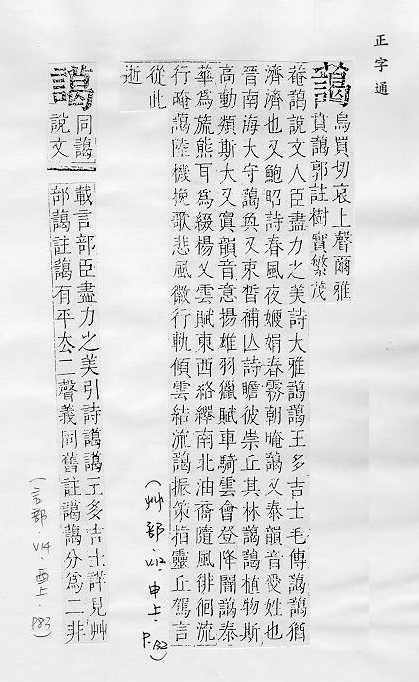 正字通
藹烏買切哀上聲爾雅
蕡藹郭註樹實繁茂
菴藹說文人臣盡力之美詩大雅藹藹王多吉士毛傳藹藹猶
濟濟也又鮑昭詩春風夜㛹娟春霧朝晻藹又泰韻音愛姓也
晉南海大守藹奐又束晳補亾詩瞻彼崇丘其林藹藹植物斯
高動類斯大又寘韻音意揚雄羽獵賦車騎雲會登降闇藹泰
華為旒熊耳為綴楊乂雲賦東西絡繹南北油裔隨風徘徊流
行晻藹陸機挽歌悲風徽行軌傾雲結流藹振策指靈丘駕言
從此
逝
(艸部．V12 申上．P.132)
譪同藹
說文
載言部臣盡力之美引詩譪譪王多吉士詳見艸
部藹註藹有平去二聲義同舊註譪藹分為二非
(言部．V4 酉上．P83)